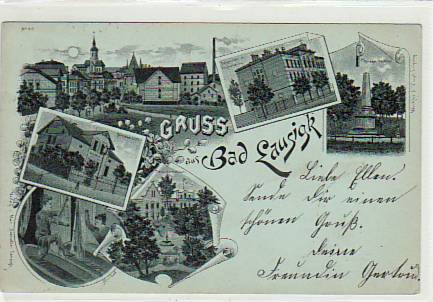 GRUSS
aus Bad Lausigk
Liebe Ellen!
Sende Dir einen
schönen Gruß.
Deine
Freundin Gertrud